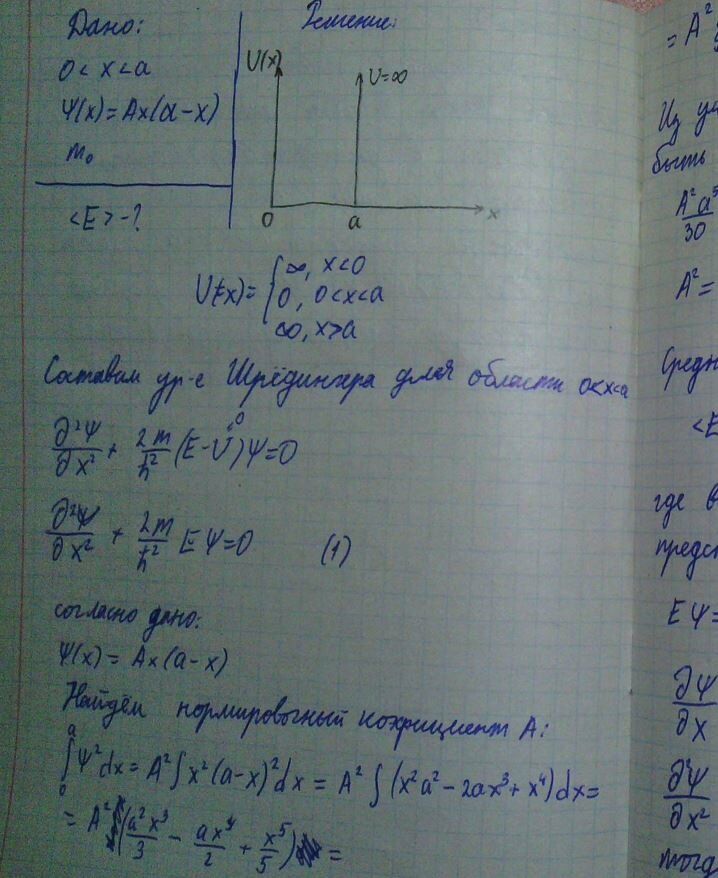 Дано:
0 < x < a
Ψ(x) = Ax(a-x)
m₀
<E> - ?
Решение:
U(x)
U=∞
0 a x
U(x) = { ∞, x<0
0, 0<x<a
∞, x>a
Составим ур-е Шрёдингера для области 0<x<a
∂²Ψ/∂x² + 2m/ħ² (E-U⁰)Ψ=0
∂²Ψ/∂x² + 2m/ħ² EΨ=0 (1)
согласно дано:
Ψ(x) = Ax(a-x)
Найдём нормировочный коэффициент A:
∫₀ᵃ Ψ²dx = A² ∫ x²(a-x)²dx = A² ∫ (x²a² - 2ax³ + x⁴)dx =
= A² (a²x³/3 - ax⁴/2 + x⁵/5) =
= A²
Из
быть
A²a⁵/30
A² =
<E
где
EΨ=
∂Ψ/∂x
∂²Ψ/∂x²